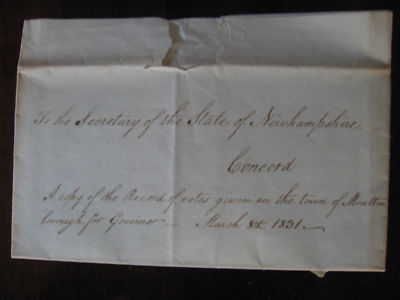 To the Secretary of the State of Newhampshire.
Concord
A copy of the Record of votes given in the town of Moulton
borough for Governor — March 8th 1831 —